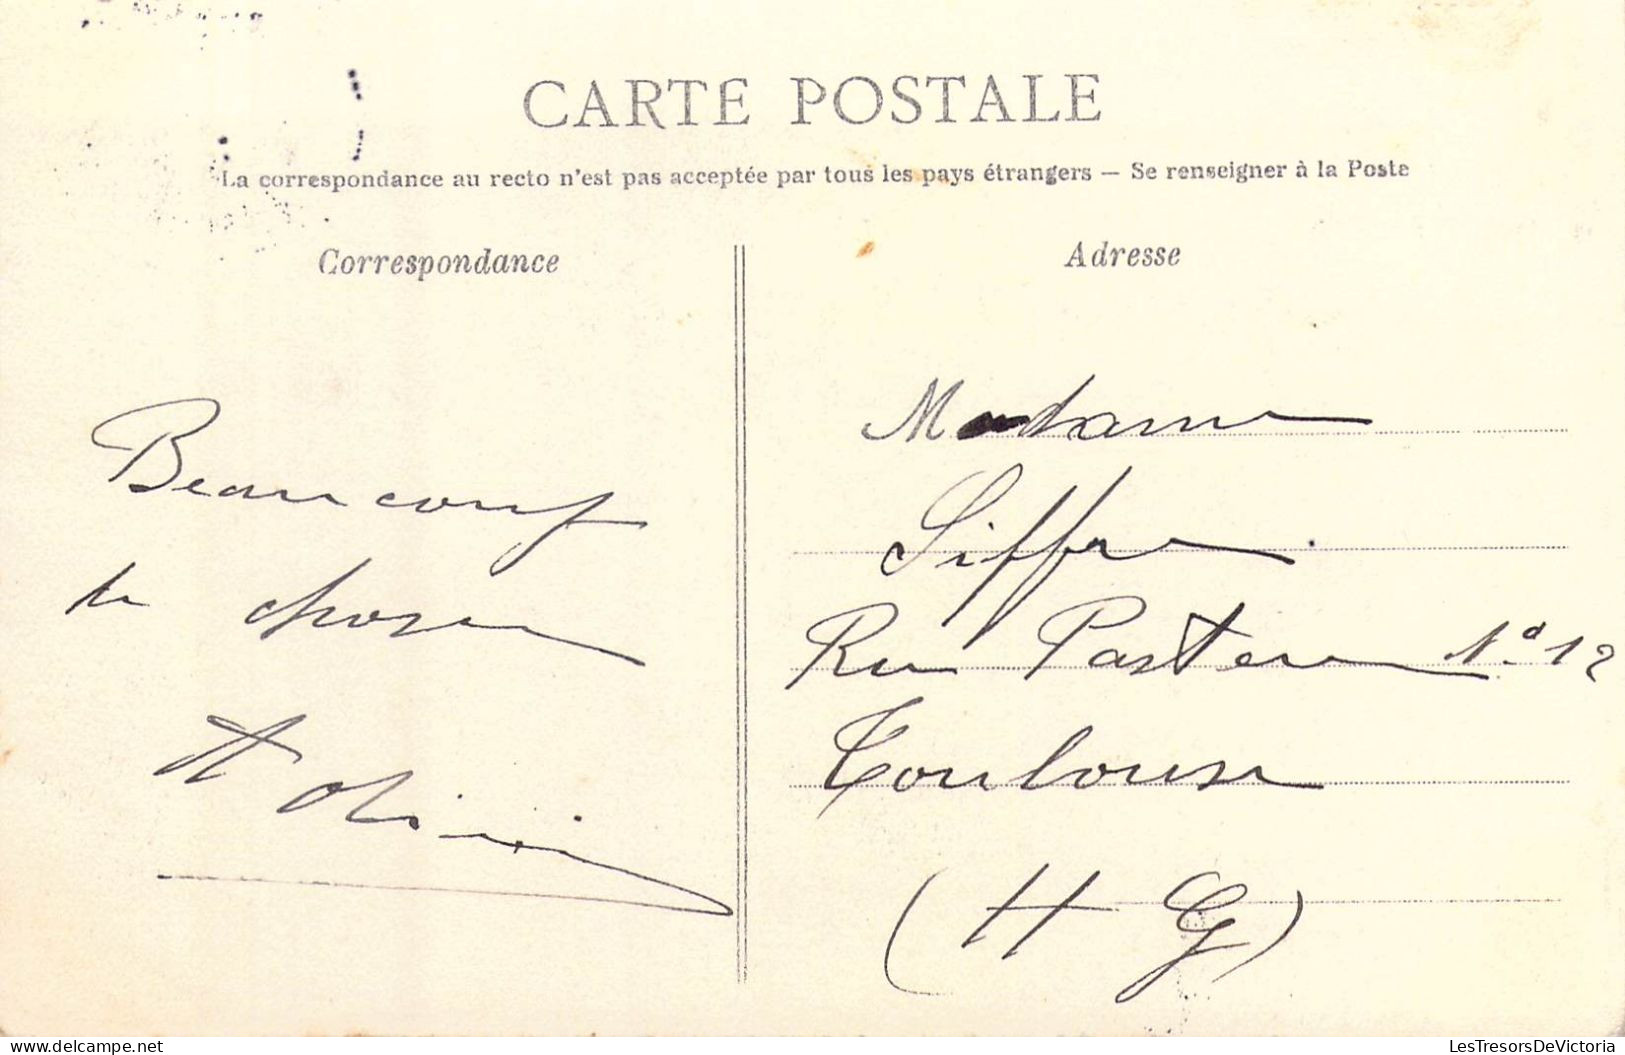 CARTE POSTALE
La correspondance au recto n'est pas acceptée par tous les pays étrangers — Se renseigner à la Poste
Correspondance
Beaucoup
de choses
Adresse
Madame
Siffre
Rue Pasteur N° 12
Toulouse
(H G)
LesTresorsDeVictoria
delcampe.net